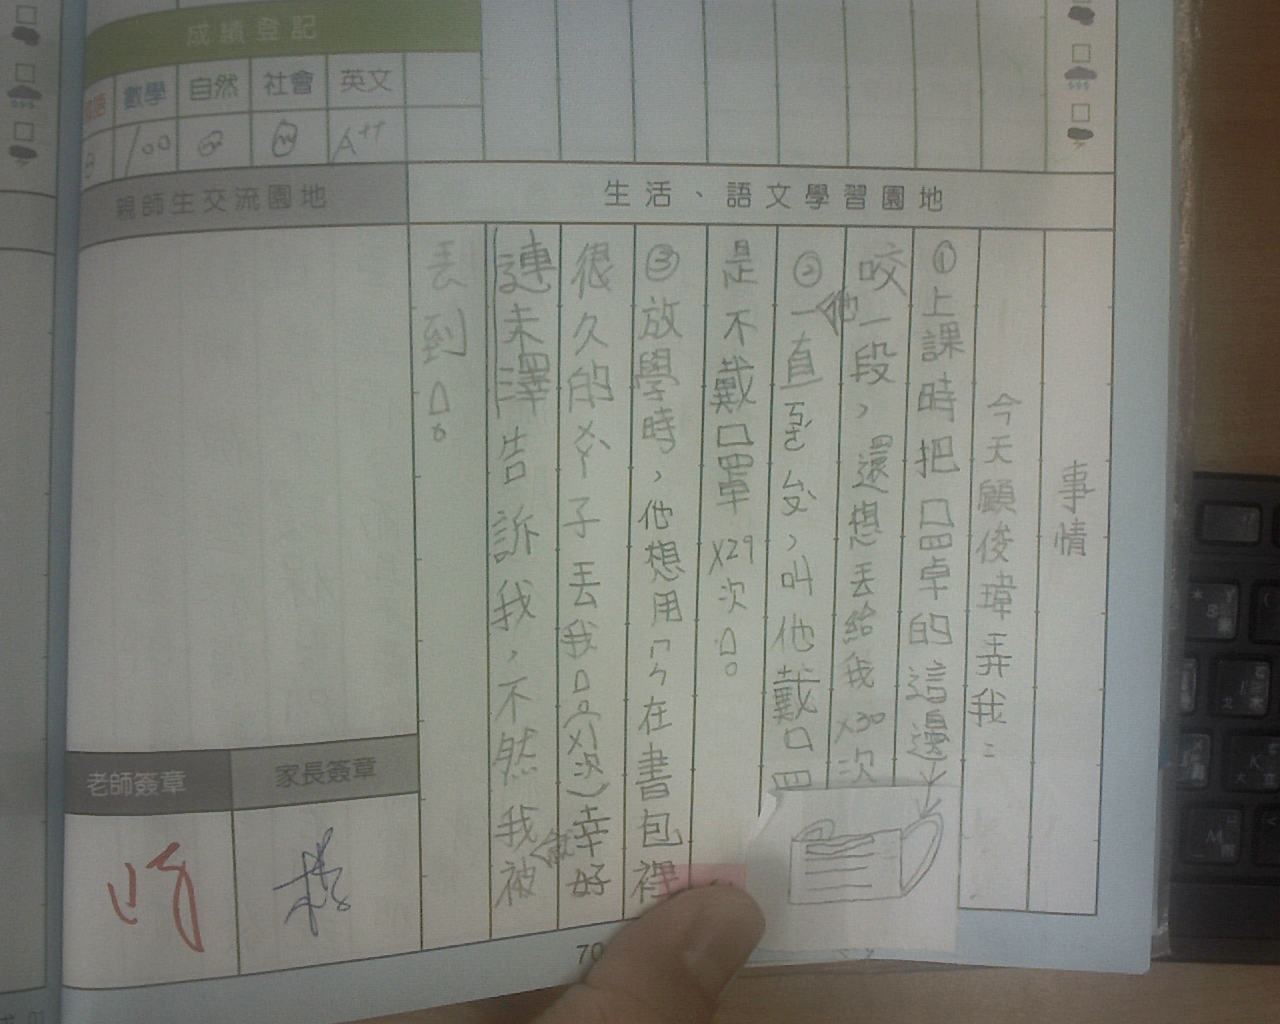 成績登記
數學 自然 社會 英文
100 A++
親師生交流園地
生活、語文學習園地
事情
今天顧俊瑋弄我：
①上課時把口罩的這邊
咬一段，還想丟給我x30次
②他一直ㄎㄜˊㄙㄡˋ，叫他戴口罩
是不戴口罩x29次。
③放學時，他想用ㄇㄣ在書包裡
很久的ㄨㄚˋ子丟我。(x1次)幸好
連未澤告訴我，不然我被
丟到。
老師簽章
家長簽章
70